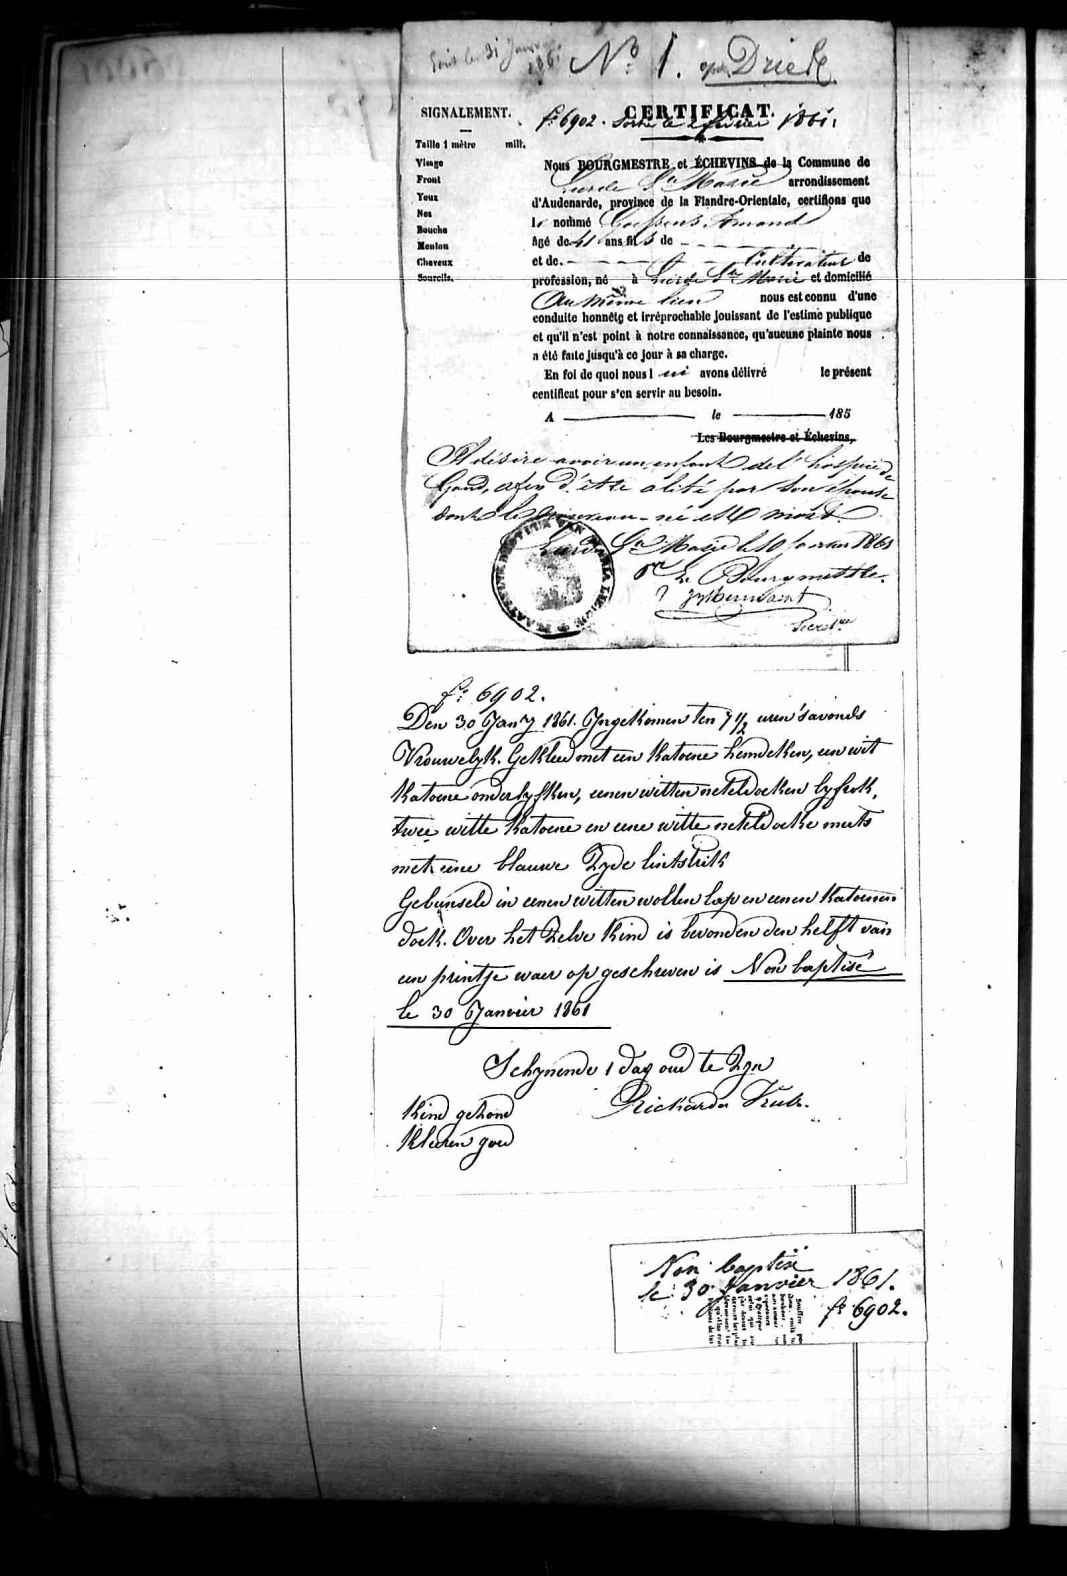 No. 1. Driele
SIGNALEMENT.
Taille 1 mètre mill.
Visage
Front
Yeux
Nez
Bouche
Menton
Cheveux
Sourcils.
CERTIFICAT.
fo 6902. Sortie le 2 février 1861.
Nous BOURGMESTRE et ÉCHEVINS de la Commune de
Lierde Ste Marie arrondissement
d'Audenarde, province de la Flandre-Orientale, certifions que
le nommé Amand
âgé de 41 ans fils de
et de Cultivateur de
profession, né à Lierde Ste Marie et domicilié
Au même lieu nous est connu d'une
conduite honnête et irréprochable jouissant de l'estime publique
et qu'il n'est point à notre connaissance, qu'aucune plainte nous
a été faite jusqu'à ce jour à sa charge.
En foi de quoi nous lui avons délivré le présent
certificat pour s'en servir au besoin.
A le 185
Les Bourgmestre et Échevins,
Il désire avoir un enfant de l'hospice de
Gand, afin d'être alité par son épouse
dont le nouveau-né est mort.
Lierde Ste Marie le 10 Janvier 1861
Le Bourgmestre.
Secret.re
fo 6902.
Den 30 Jany 1861. Ingekomen ten 7 1/2 uren 's avonds
Vrouwelyk. Gekleed met een katoene hemdeken, een wit
katoene onderlyfken, eenen witten neteldoeken lyfrok,
twee witte katoene en eene witte neteldoeke muts
met eene blauwe zyde lintstrik
Gebunseld in eenen witten wollen lap en eenen katoenen
doek. Over het zelve kind is bevonden den helft van
een printje waer op geschreven is Non baptisé
le 30 Janvier 1861
Schynende 1 dag oud te zyn
Kind gezond
Kleeren goed
Non baptisé
le 30 Janvier 1861.
fo 6902.